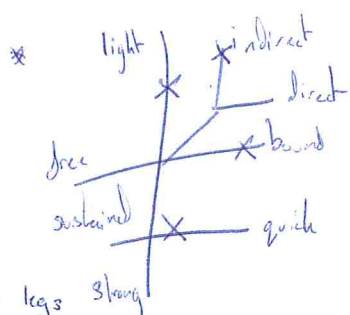 light
indirect
direct
free
bound
sustained
quick
legs strong